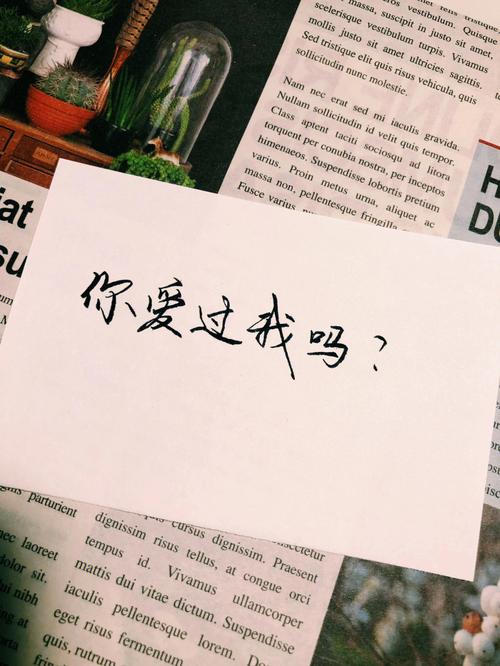 scelerisque vestibulum. Quisque
mollis justo sit amet ultricies sagittis.
Sed tristique elit quis risus vehicula, quis
sollicitudin nunc molestie.
Nam nec erat sed mi iaculis gravida.
Nullam sollicitudin id velit quis tempor.
Class aptent taciti sociosqu ad litora
torquent per conubia nostra, per inceptos
himenaeos. Suspendisse lobortis pretium
varius. Proin metus urna, aliquet ac
massa non, pellentesque fringilla
Fusce varius
H
DU
iat
su
你爱过我吗?
parturient
nec laoreet
dolor sit,
dui nibh
cursus dignissim.
dignissim risus tellus, at congue orci
tempus id. Vivamus ullamcorper
mattis dui vitae dictum. Suspendisse
iaculis pellentesque lorem.
eget risus fermentum
quis, rutrum